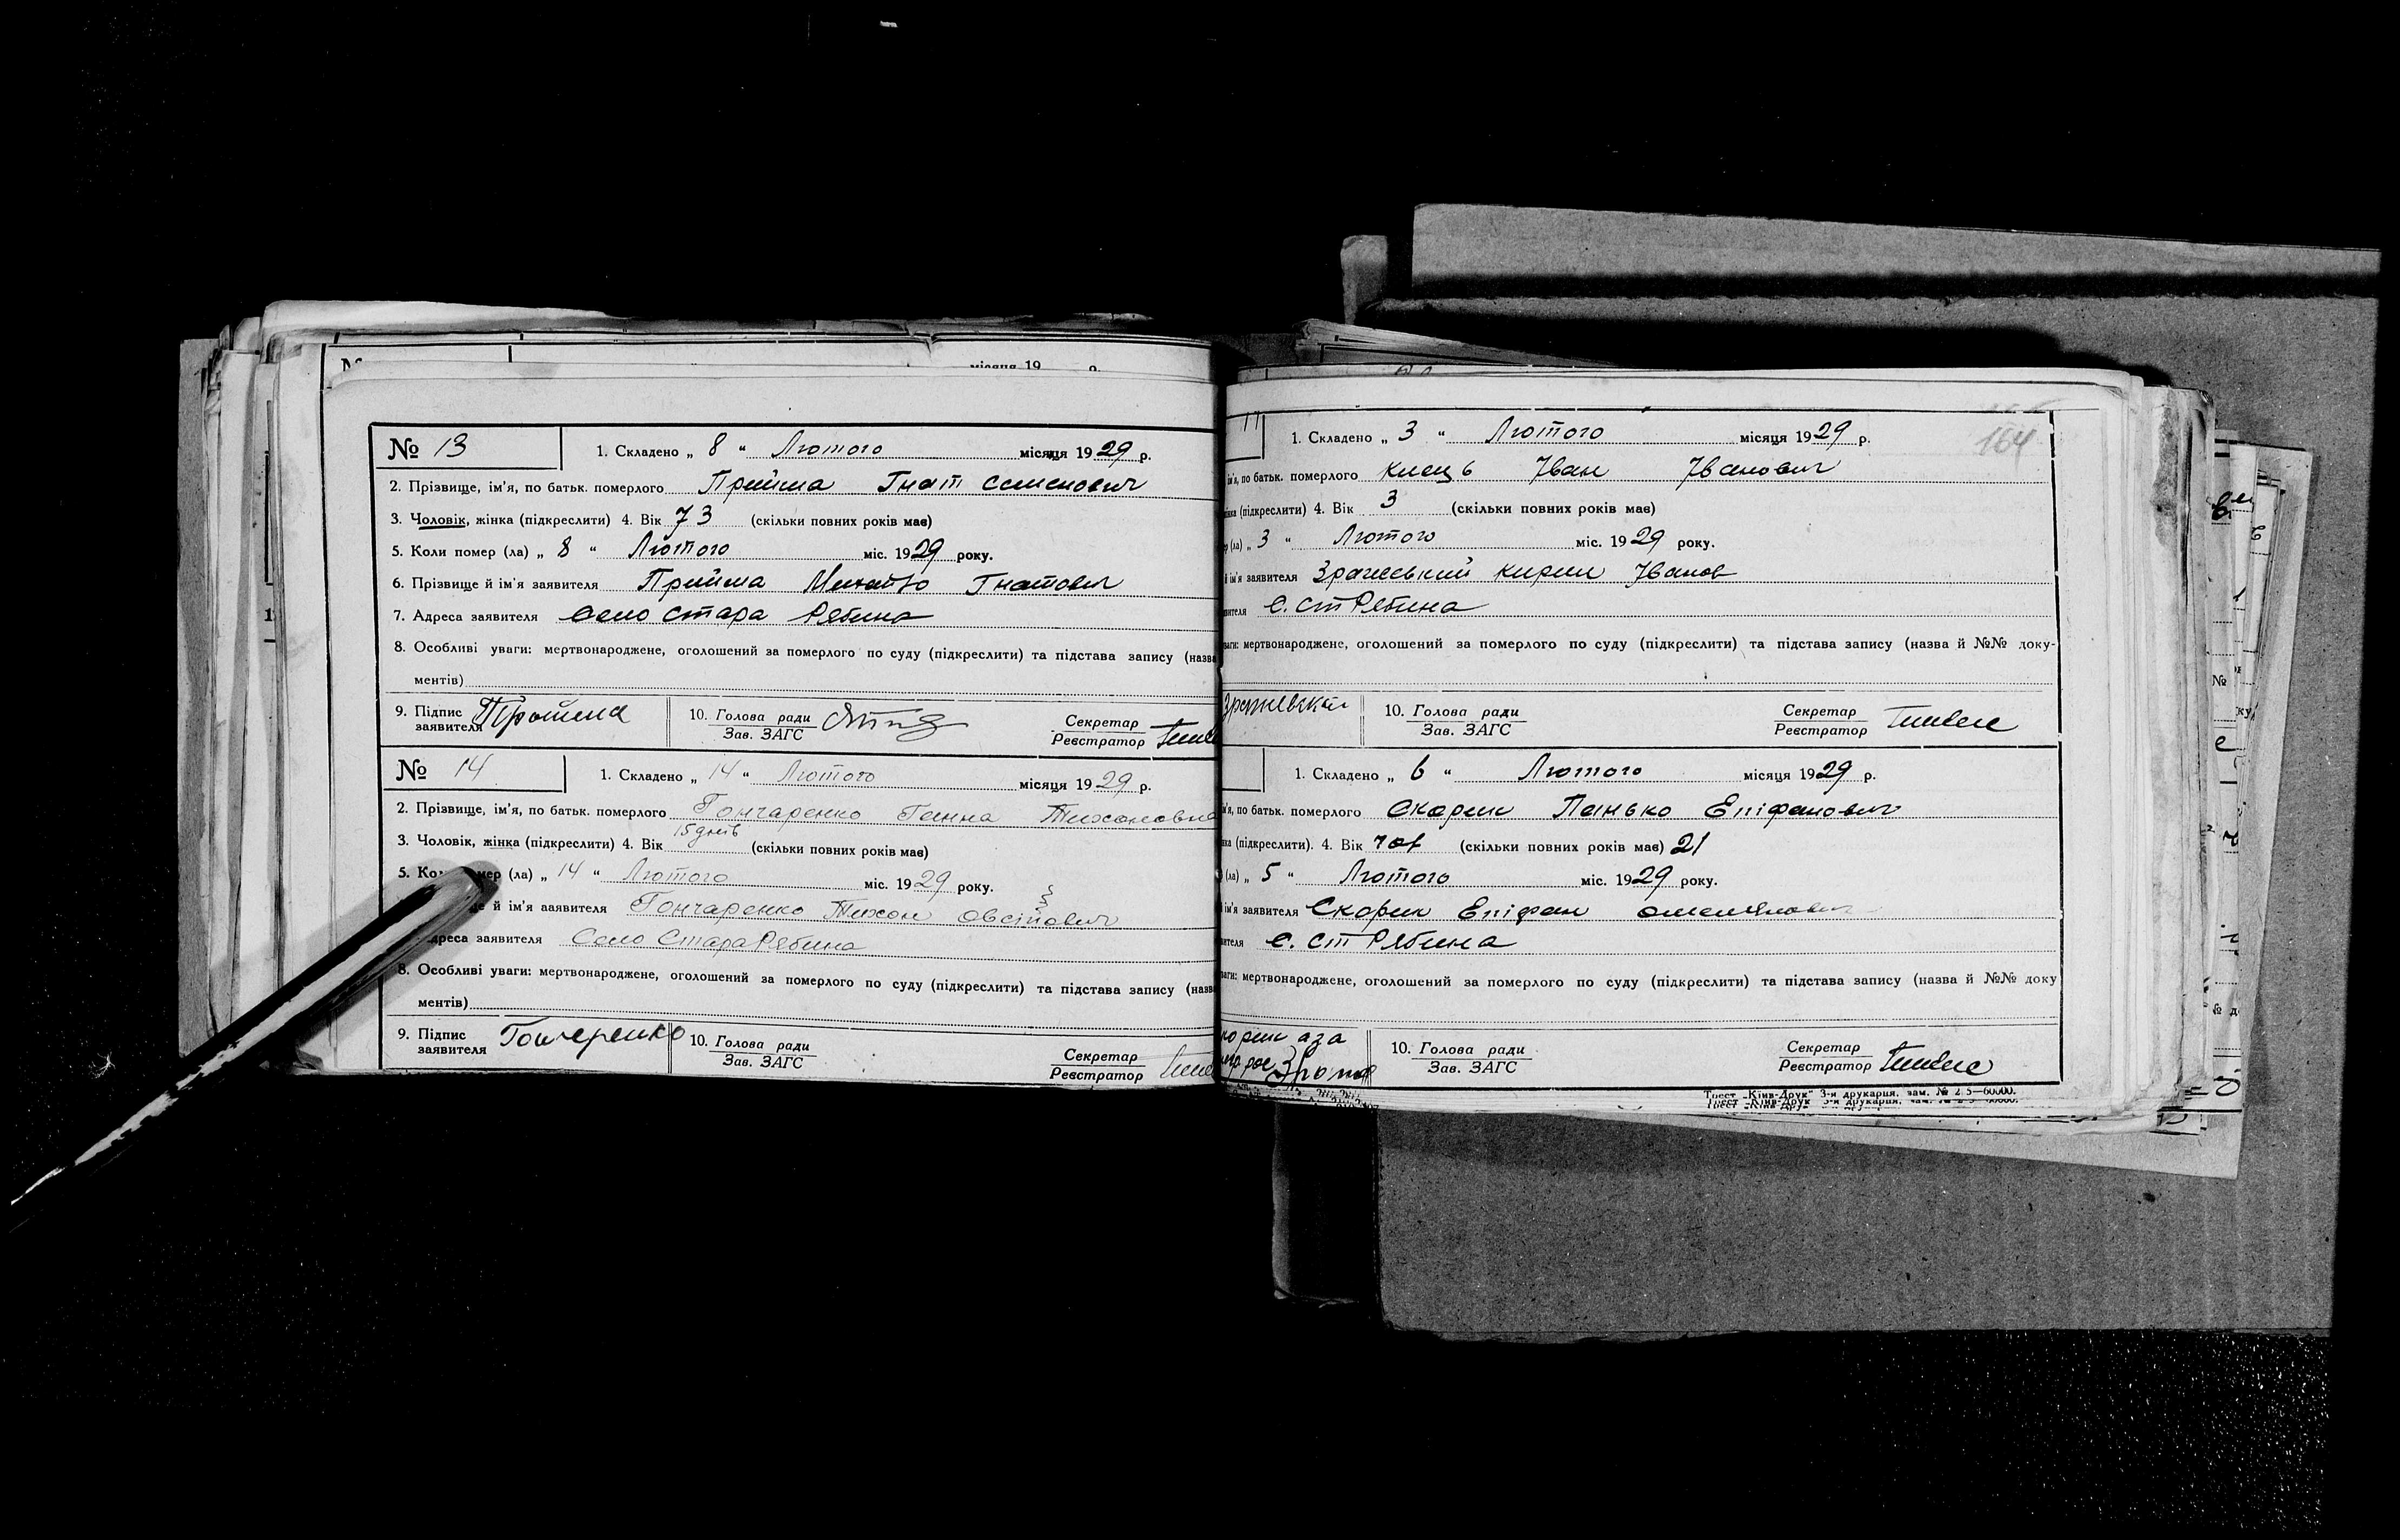 № 13
1. Складено „ 8 " Лютого місяця 1929 р.
2. Прізвище, ім'я, по батьк. померлого Прийма Гнат Семенович
3. Чоловік, жінка (підкреслити) 4. Вік 73 (скільки повних років має)
5. Коли помер (ла) „ 8 " Лютого міс. 1929 року.
6. Прізвище й ім'я заявителя Прийма Михайло Гнатович
7. Адреса заявителя Село Стара Рябина
8. Особливі уваги: мертвонароджене, оголошений за померлого по суду (підкреслити) та підстава запису (назва
ментів)
9. Підпис заявителя
10. Голова ради
Зав. ЗАГС
Секретар
Реєстратор
№ 14
1. Складено „ 14 " Лютого місяця 1929 р.
2. Прізвище, ім'я, по батьк. померлого Гончаренко Ганна Тихоновна
3. Чоловік, жінка (підкреслити) 4. Вік 15 днів (скільки повних років має)
5. (ла) „ 14 " Лютого міс. 1929 року.
й ім'я заявителя Гончаренко Тихон Овсійович
заявителя Село Стара Рябина
8. Особливі уваги: мертвонароджене, оголошений за померлого по суду (підкреслити) та підстава запису (назва
ментів)
9. Підпис заявителя Гончеренко
10. Голова ради
Зав. ЗАГС
Секретар
Реєстратор
11
1. Складено „ 3 " Лютого місяця 1929 р.
164
ім'я, по батьк. померлого Клець Іван Іванович
(підкреслити) 4. Вік 3 (скільки повних років має)
(ла) „ 3 " Лютого міс. 1929 року.
й ім'я заявителя Кирил Іванов
с. Ст Рябина
мертвонароджене, оголошений за померлого по суду (підкреслити) та підстава запису (назва й №№ доку-
10. Голова ради
Зав. ЗАГС
Секретар
Реєстратор
1. Складено „ 6 " Лютого місяця 1929 р.
по батьк. померлого Скорик Панько Епіфанович
(підкреслити). 4. Вік (скільки повних років має) 21
(ла) „ 5 " Лютого міс. 1929 року.
ім'я заявителя Скорик Епіфан Омелянович
с. Ст Рябина
мертвонароджене, оголошений за померлого по суду (підкреслити) та підстава запису (назва й №№ доку
10. Голова ради
Зав. ЗАГС
Секретар
Реєстратор
Трест „Київ-Друк" 3-я друкарня,